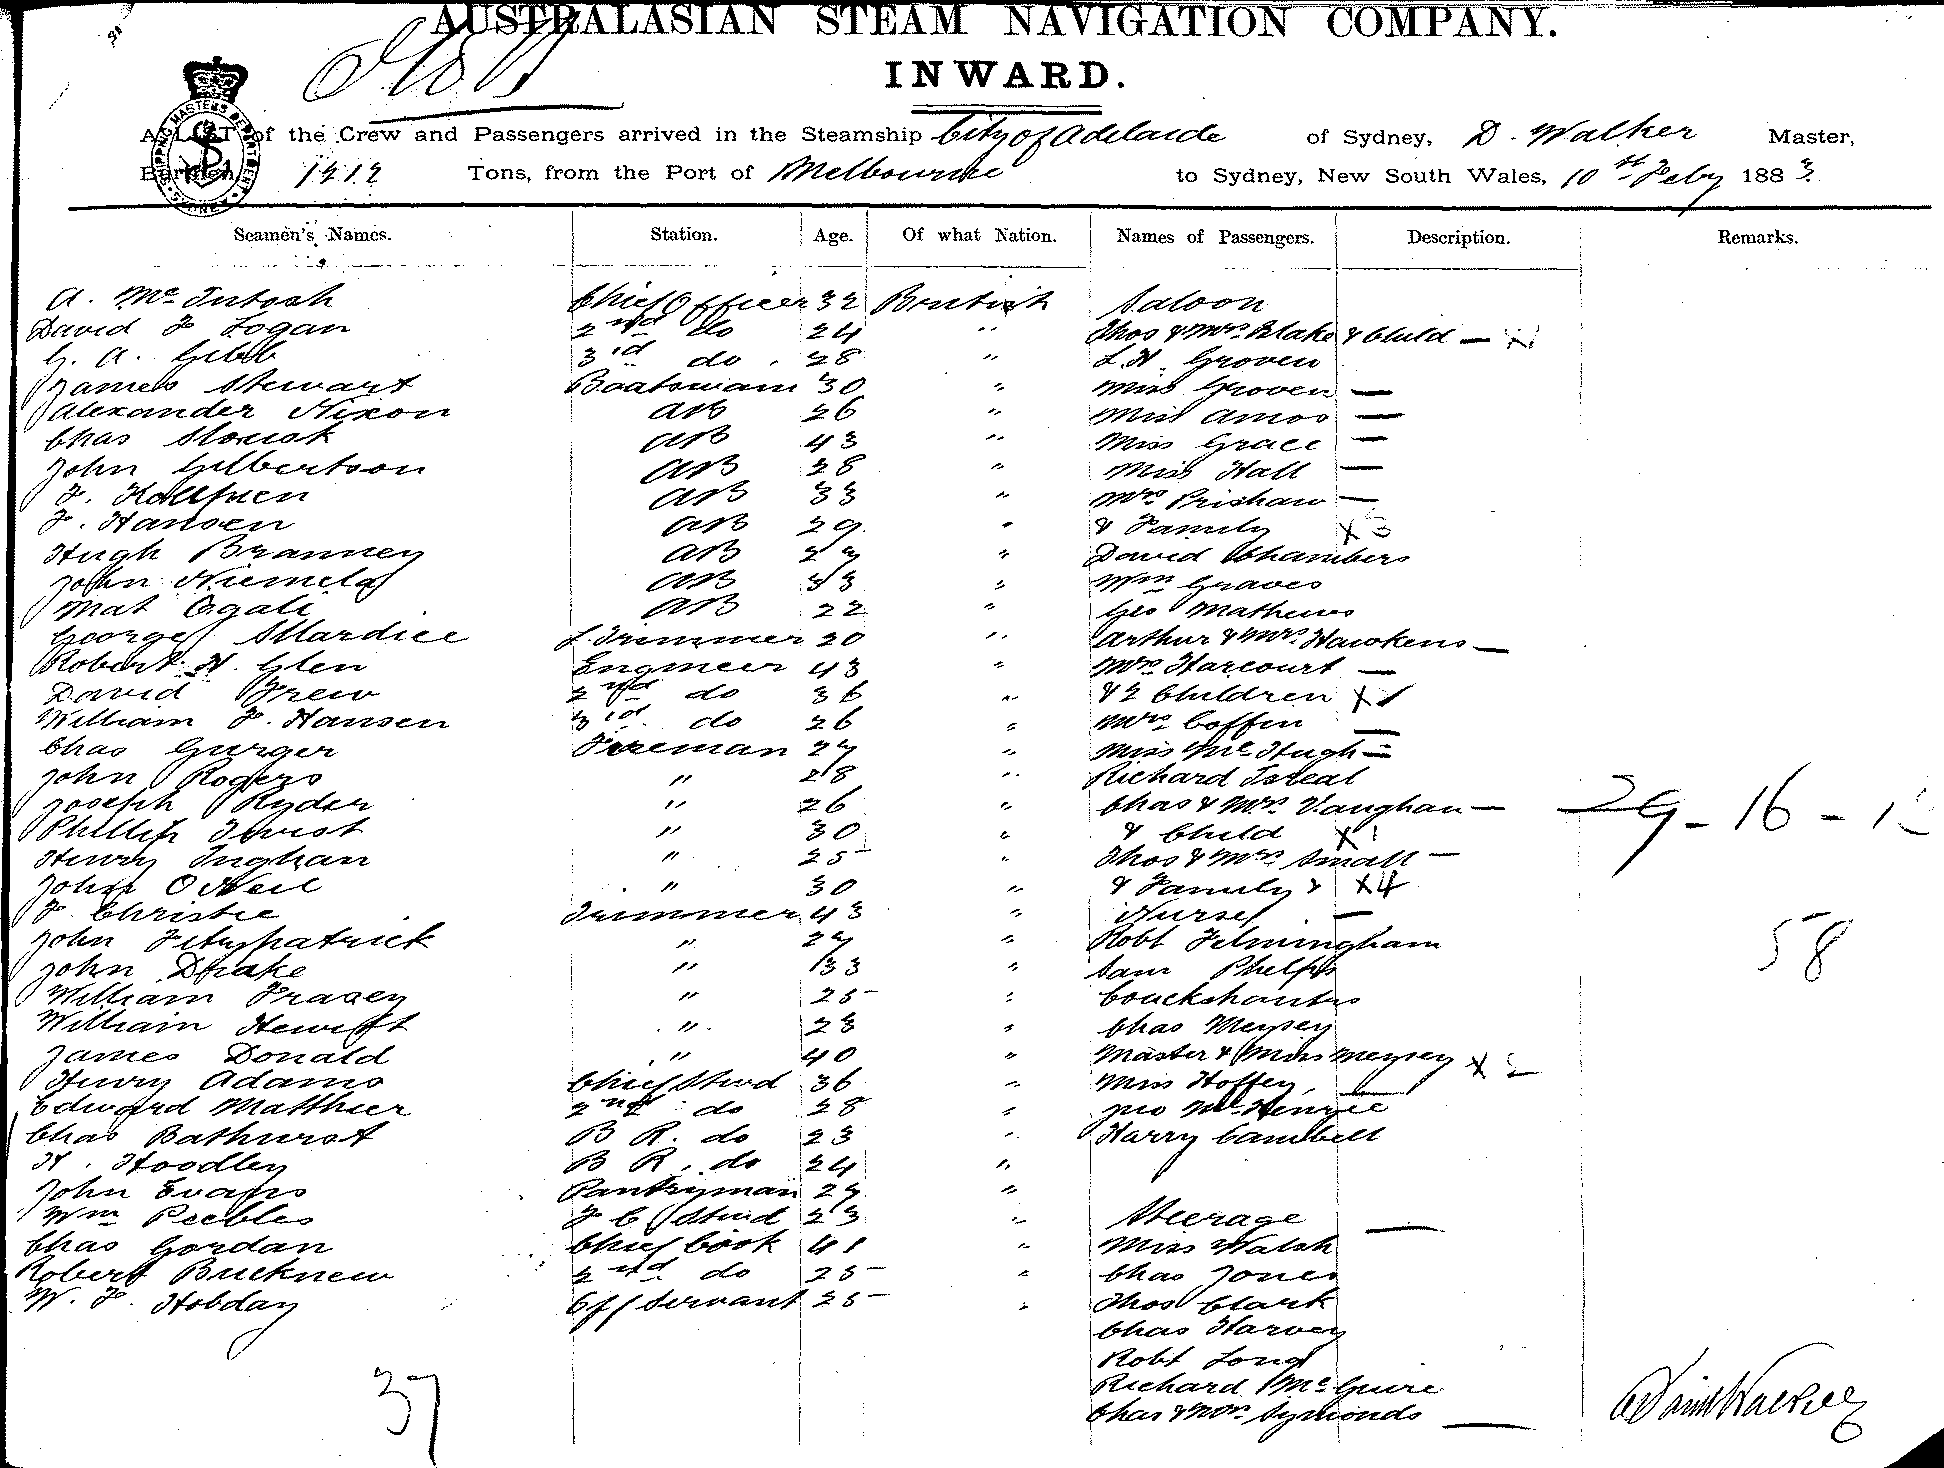 AUSTRALASIAN STEAM NAVIGATION COMPANY.
INWARD.
A LIST of the Crew and Passengers arrived in the Steamship City of Adelaide of Sydney, D. Walker Master,
Burthen 1212 Tons, from the Port of Melbourne to Sydney, New South Wales, 10th Feby 1883
Seamen's Names. Station. Age. Of what Nation. Names of Passengers. Description. Remarks.
A. McIntosh Chief Officer 32 British Saloon
David F Logan 2nd do 24 " Thos & Mrs Blake & Child —
G. A. Gibb 3rd do. 28 " L. H. Groven
James Stewart Boatswain 30 " Miss Groven —
Alexander Nixon AB 26 " Miss Amos —
Chas AB 43 " Miss Grace —
John Gilbertson AB 28 " Miss Hall —
AB 33 " Mrs Prishaw —
F. Hansen AB 29 " & Family x 3
Hugh Branney AB 27 " David Chambers
John Niemela AB 33 " Wm Graves
Mat AB 22 " Geo Mathews
George L. Trimmer 20 " Arthur & Mrs Hawkens —
Robert H. Glen Engineer 43 " Mrs Harcourt —
David Frew 2nd do 36 " & 2 Children x 1
William F. Hansen 3rd do 26 " Mrs Coffin —
Chas Gurger Fireman 27 " Miss McHugh —
John Rogers " 28 " Richard
Joseph Ryder " 26 " Chas & Mrs Vaughan — 29 - 16 - 1
Phillip Twist " 30 " & Child x 1
Henry Inghan " 25 " Thos & Mrs Small —
John O'Neil " 30 " & Family & x 4
F. Christie Trimmer 43 " Nurse —
John Fitzpatrick " 27 " Robt Felmingham 58
John Drake " 33 " Sam Phelps
William Frasey " 25 "
William Hewitt " 28 " Chas Meysey
James Donald " 40 " Master & Miss Meysey x 2
Henry Adams Chief Stwd 36 " Miss Hoffey, —
Edward Matthier 2nd do 28 " Jno McKenzie
Chas Bathurst B R. do 23 " Harry Cambell
H. Hoodley B R. do 24 "
John Evans Pantryman 27 "
Wm Peebles F C Stwd 23 " Steerage
Chas Gordan Chief Cook 41 " Miss Walsh —
Robert Bucknew 2nd do 25 " Chas Jones
W. F. Hobday Off Servant 25 " Thos Clark
Chas Harvey
Robt Long
37 Richard McGuire
Chas & Mrs Symonds —